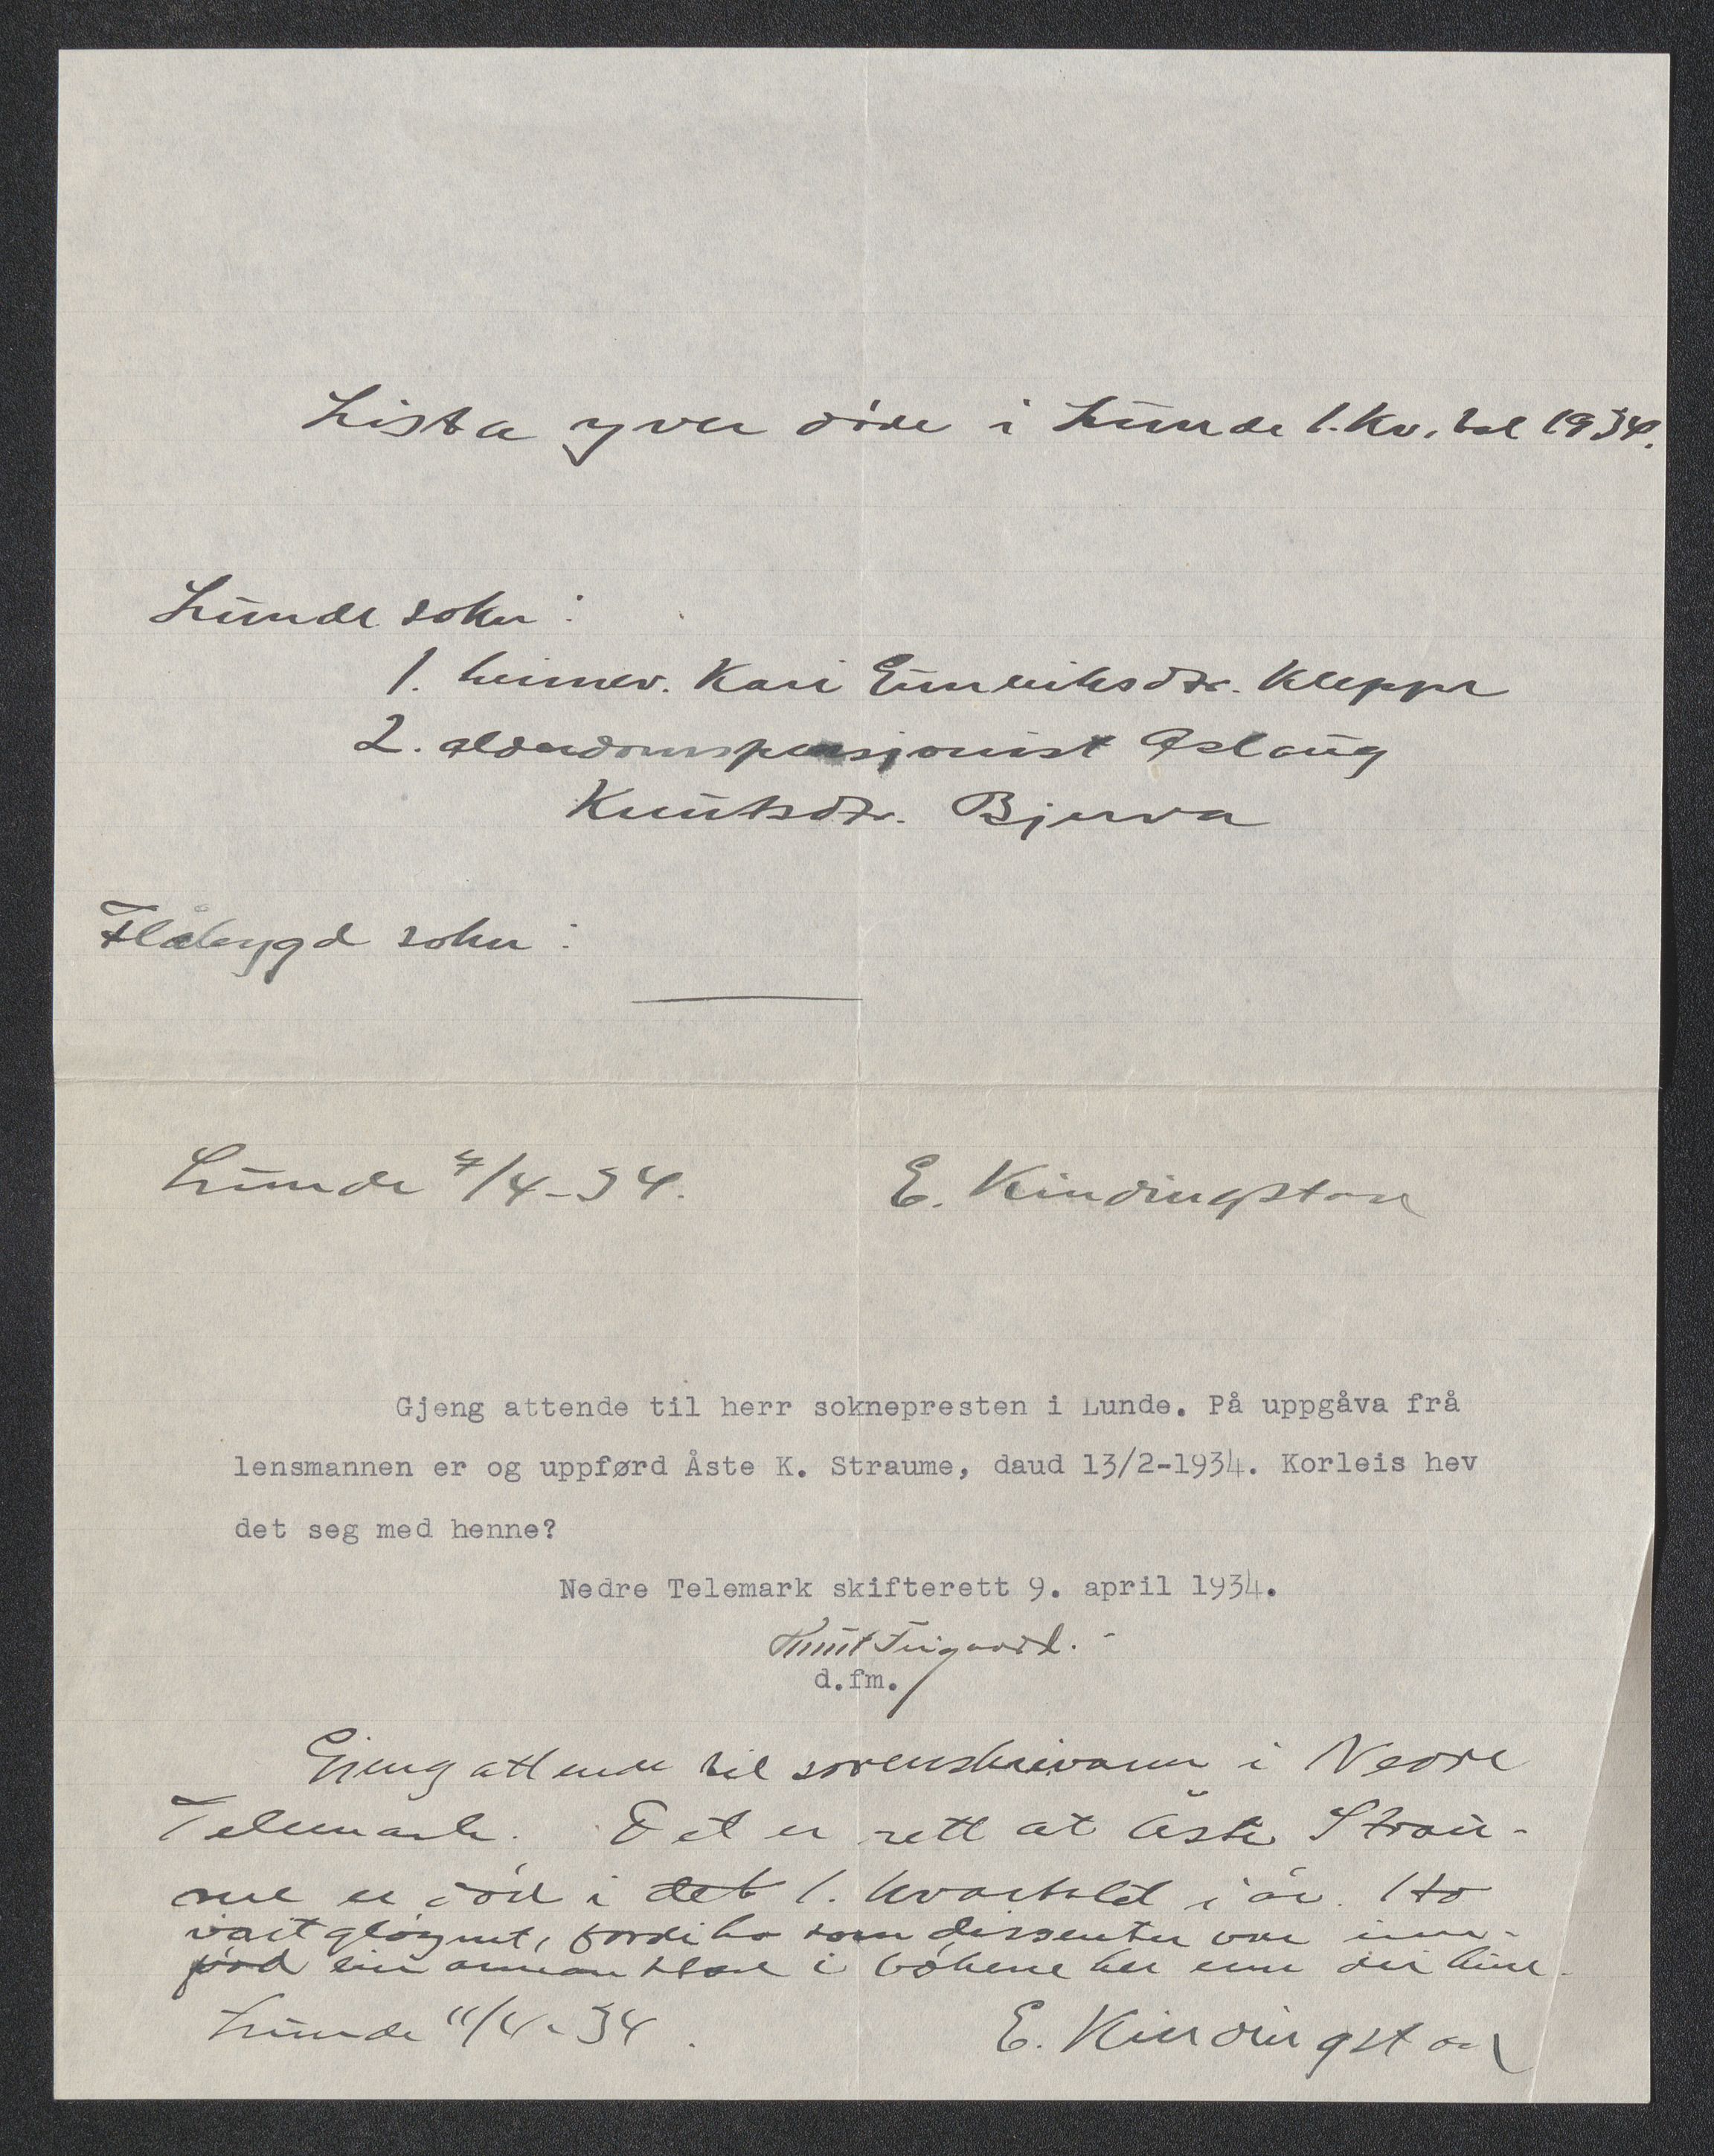 Lista yver døde i Lunde 1. Kv. tal 1934.
Lunde sokn:
1. heimev. Kari Gunleiksdtr. Kleppe
2. alderdomspensjonist Aslaug
Knutsdtr. Bjerva
Flåbygd sokn:
Lunde 7/4-34. E. Kindingstad
Gjeng attende til herr soknepresten i Lunde. På uppgåva frå
lensmannen er og uppførd Åste K. Straume, daud 13/2-1934. Korleis hev
det seg med henne?
Nedre Telemark skifterett 9. april 1934.
Knut
d.fm.
Gjeng attende til sorenskrivaren i Nedre
Telemark. Det er rett at Åste Strau-
me er død i det 1. kvartalet i år. Ho
vart gløymt, fordi ho som dissenter var inn-
førd ein annan stad i bökene her enn dei hine.
Lunde 11/4-34. E. Kindingstad